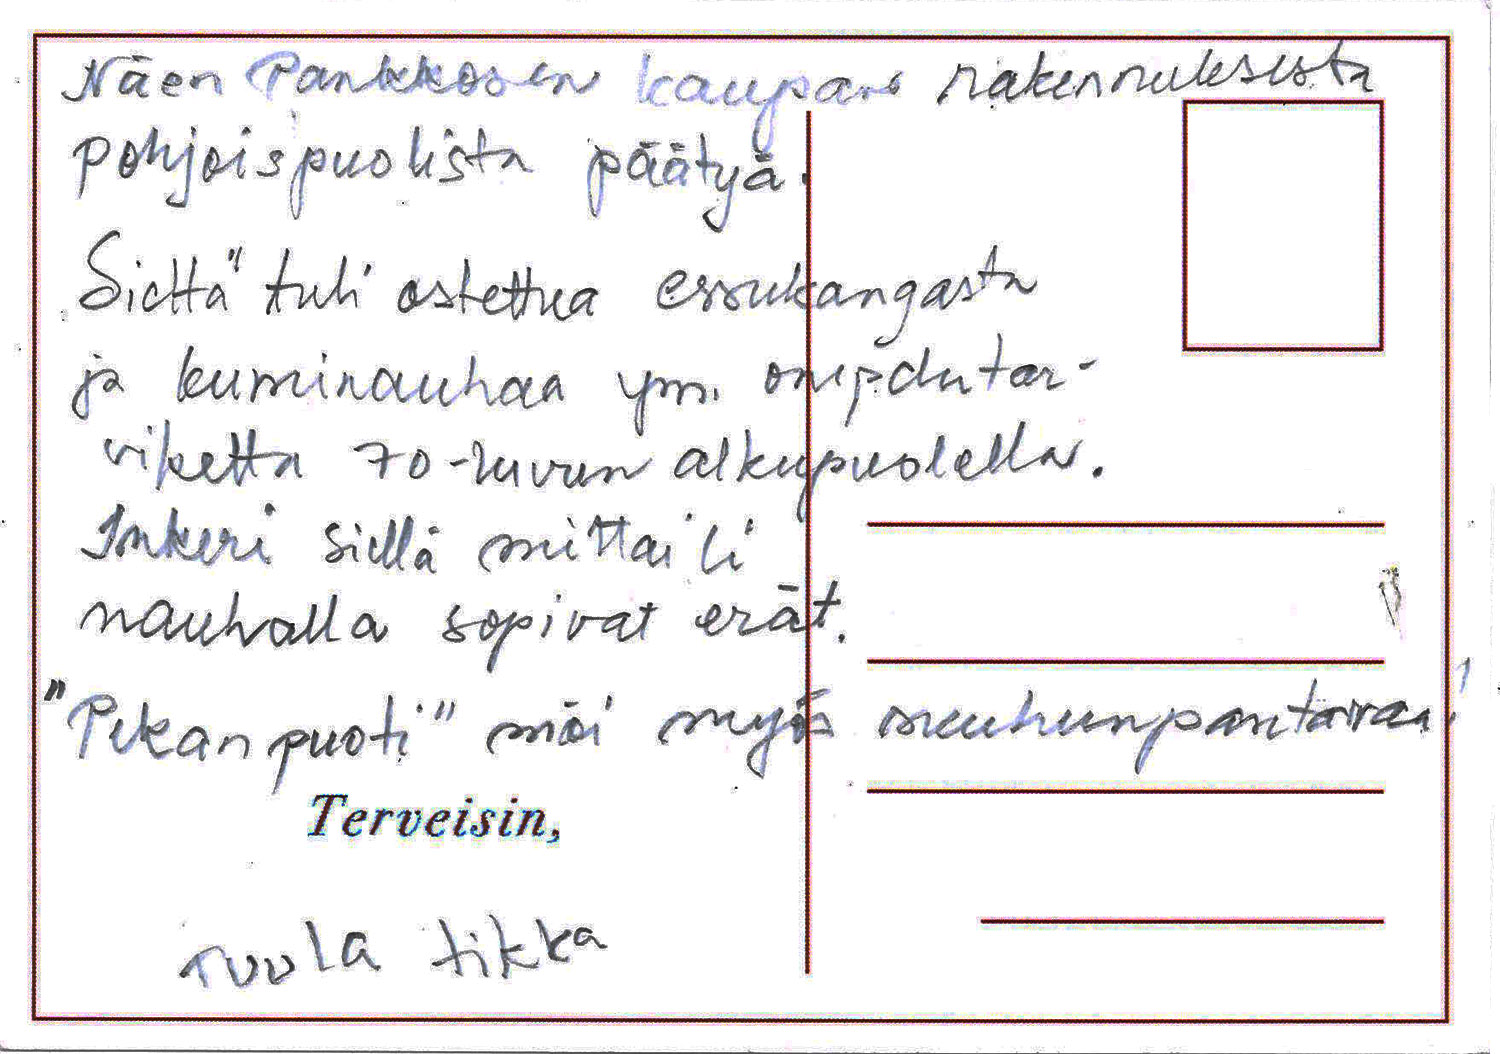 Näen Pankkosen kaupan rakennuksesta
pohjoispuolista päätyä.
Sieltä" tuli ostettua essukangasta
ja kuminauhaa ym. ompelutar-
viketta 70-luvun alkupuolella.
Inkeri siellä mittaili
nauhalla sopivat erät.
"Pekan puoti" möi myös suuhunpantavaa!
Terveisin,
Tuula Tikka